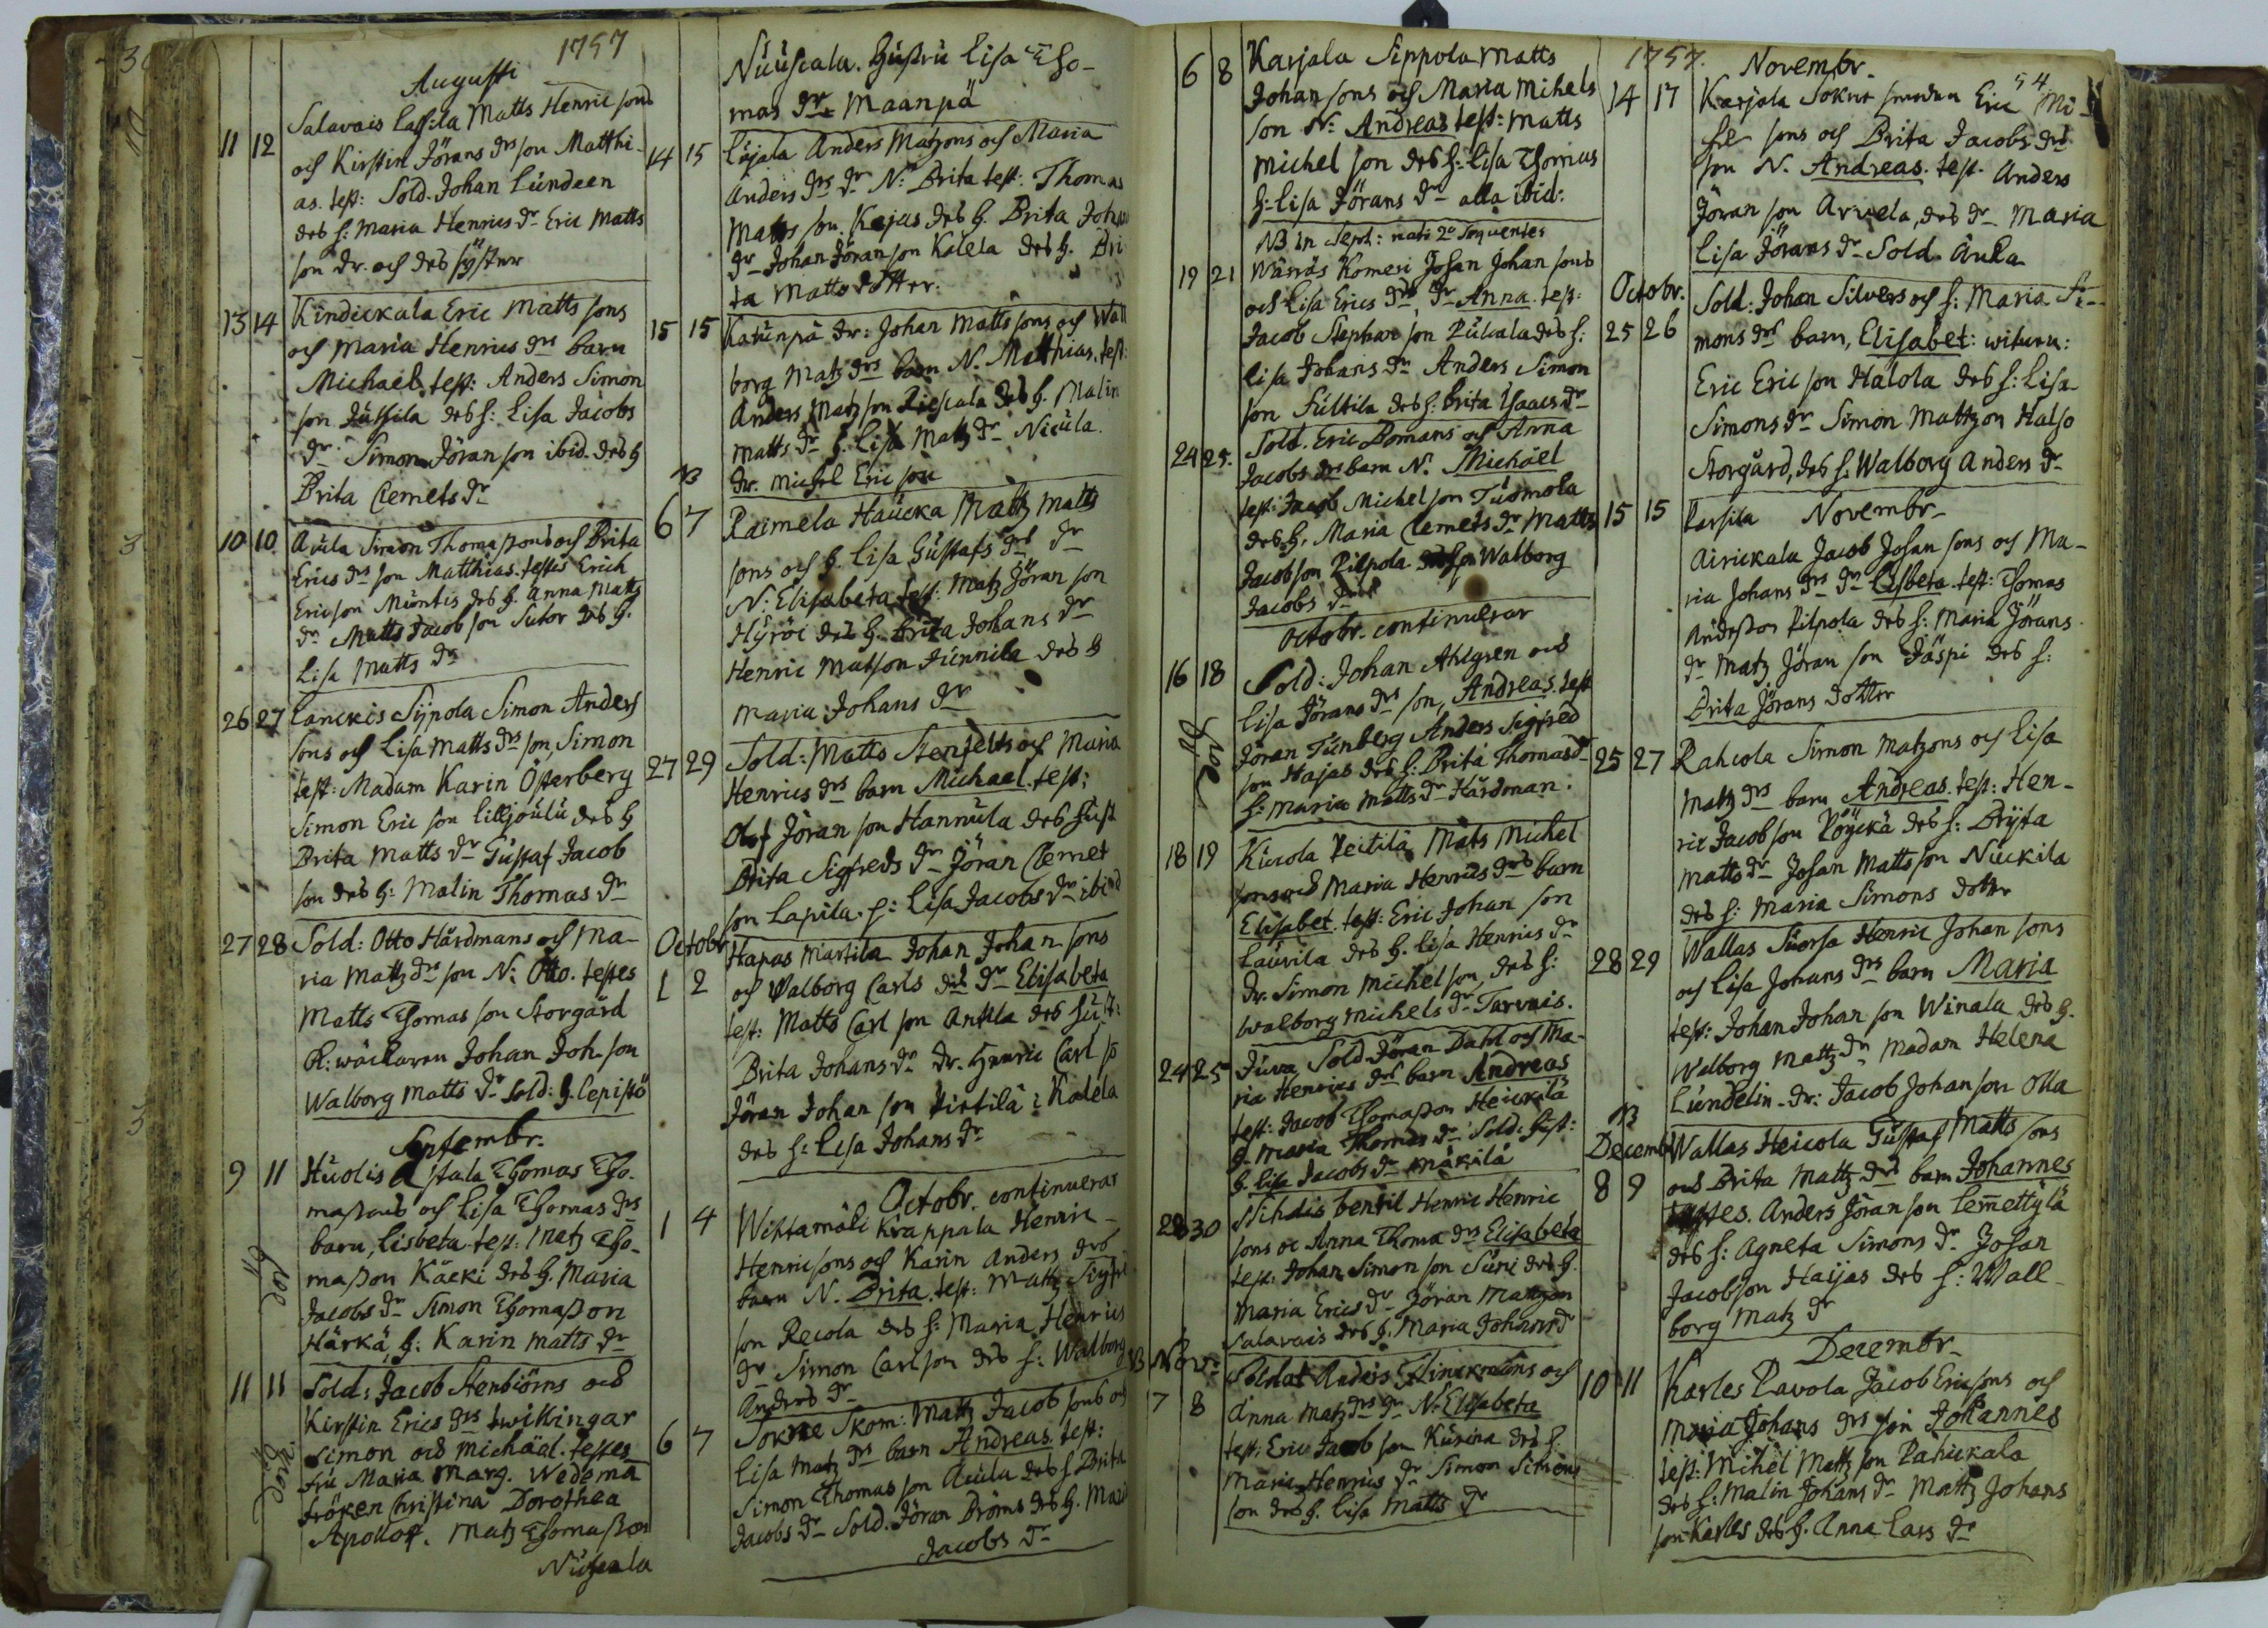 1757
Augusti
11 12 Salavais Lassila Matts Henric sons
och Kirstin Jörans drs son Matthi-
as. test: Sold. Johan Lundeen
des h: Maria Henrics dr Eric Matts
son dr. och des syster
13 14 Kindickala Eric Matts sons
och Maria Henrics drs barn
Michael. test: Anders Simon
son Jussila des h: Lisa Jacobs
dr Simon Jöran son ibid. des h
Brita Clemets dr
10 10 Aula Simon Thomassons och Brita
Erics drs son Matthias. testes Erich
Ericson Muntis des h. Anna Matts
dr Matts Jacob son Sutor des h.
Lisa Matts dr
26 27 Lanckis Sijpola Simon Anders
sons och Lisa Matts drs son, Simon
test: Madam Karin Österberg
Simon Eric son Lilljoulu des h
Brita Matts dr Gustaf Jacob
son des h: Malin Thomas dr
27 28 Sold: Otto Hårdmans och Ma-
ria Mattz drs son N: Otto. testes
Matts Thomas son Storgård
Kl: wäckaren Johan Joh. son
Walborg Matts dr Sold: h. Lepistö
Septembr.
9 11 Huolis Astala Thomas Tho-
massons och Lisa Thomas drs
barn, Lisbeta. test: Matz Tho-
masson Käcki des h. Maria
Jacobs dr Simon Thomasson
Härkä, h: Karin Matts dr
11 11 Sold: Jacob Stenbiörns och
Kirstin Erics drs twillingar
Simon och Michäel. testes
fru Maria Marg. Wedema
fröken Christina Dorothea
Apolloff. Matz Thomasson
Niuscala
Niuscala. hustru Lisa Tho-
mas dr Maanpä
14 15 Löjala Anders Matzons och Maria
Anders drs dr N: Brita test: Thomas
Matts son Kajas des h. Brita Johans
dr Johan Jöran son Kalela des h. Bri
ta Matts dotter.
15 15 Katinpä dr: Johan Matts sons och Wall
borg Matz drs barn N. Matthias. test:
Anders Matz son Liescala des h. Malin
Matts dr h. Lisa Matz dr Nicula.
dr. Michel Eric son
NB
6 7 Raimela Haucka Matz Matts
sons och h. Lisa Gustafs drs dr
N: Elisabeta test: Matz Jöran son
Hyröi des h. Brita Johans dr
Henric Matson Junnila des h
Maria Johans dr
27 29 Sold: Matts Stenfelts och Maria
Henrics drs barn Michael. test:
Olof Jöran son Hannula des hust
Brita Sigfreds dr Jöran Clemet
son Lapila. h: Lisa Jacobs dr ibid
Octobr.
1 2 Hapas Martila Johan Johan sons
och Walborg Carls drs dr Elisabeta
test: Matts Carl son Anttila des hust:
Brita Johans dr dr. Henric Carl so
Jöran Johan son Pirtilä i Kalela
des h: Lisa Johans dr
Octobr. continuerar
1 4 Wihtamäki Krappala Henric
Henricsons och Karin Anders drs
barn N. Brita. test: Mattz Sigfri
son Recola des h: Maria Henrics
dr Simon Carlson des h: Walborg
Anders dr
6 7 Sokne Skom: Mattz Jacob sons och
Lisa Matz drs barn Andreas. test:
Simon Thomas son Aula des h Brita
Jacobs dr Sold. Jöran Bröms des h. Mari
Jacobs dr
6 8 Karjala Sippola Matts
Johan sons och Maria Mihels
son N: Andreas test: Matts
Michel son des h: Lisa Thomas
h: Lisa Jörans dr alla ibid:
NB in Sept: nati 2o sequentes
19 21 Wäsräs Komesi Johan Johan sons
och Lisa Erics drs dr Anna. test:
Jacob Stephan son Pukala des h:
Lisa Johans dr Anders Simon
son Sultila des h: Brita Isaacs dr
24 25. Sold. Eric Bomans och Anna
Jacobs drs barn N. Michäel
test: Jacob Michel son Tuomola
des h. Maria Clemets dr Matts
Jacob son Pilpola des h Walborg
Jacobs dr
Octobr. continuerar
16 18 Sold: Johan Ahlgren och
Lisa Jörans drs son, Andreas. test
Jöran Tunberg Anders Sigfred
son Hajas des h: Brita Thomas dr
h: Maria Matts dr Hårdman.
18 19 Kicola Peitilä Mats Michel
sons och Maria Henrics drs barn
Elisabet. test: Eric Johan son
Laurila des h. Lisa Henrics dr
dr. Simon Michelson, des h:
Walborg Michels dr Tarvais.
24 25 Juva Sold Jöran Dahl och Ma-
ria Henrics drs barn Andreas
test: Jacob Thomasson Heickilä
h. Maria Thomas dr Sold: hust:
h. Lisa Jacobs dr Mäkilä
28 30 Nihdis bentil Henric Henric
sons oc Anna Thoma drs Elisabeta
test: Johan Simon son Suni des h.
Maria Erics dr Jöran Mattzon
Salavais des h. Maria Johans dr
NB Nov:
7 8 Soldat Anders Flinckmans och
Anna Matz drs dr N. Elisabeta
test: Eric Jacob son Kurina des h.
Maria Henrics dr Simon Simons
son des h. Lisa Matts dr
1757. Novembr.
54
14 17 Karjala Sokne smeden Eric Mi-
hel sons och Brita Jacobs drs
son N. Andreas. test. Anders
Jöran son Arvela, des dr Maria
Lisa Jörans dr Sold. Aula
Octobr.
25 26 Sold: Johan Silvers och h: Maria Si-
mons drs barn, Elisabet: witnen:
Eric Eric son Halola des h: Lisa
Simons dr Simon Mattzon Halso
Storgård, des h: Walborg Anders dr
15 15 Karsila Novembr.
Airickala Jacob Johan sons och Ma-
ria Johans drs dr Lisbeta. test: Thomas
Andersson Pilpola des h: Maria Jörans
dr Matz Jöran son Jäspi des h:
Brita Jörans dotter
25 27 Rahcola Simon Matzons och Lisa
Matz drs barn Andreas. test: Hen-
ric Jacob son Röyckä des h: Brijta
Matts dr Johan Matts son Nuckila
des h: Maria Simons dotter
28 29 Wallas Suorsa Henric Johan sons
och Lisa Johans drs barn Maria
test: Johan Johan son Winala des h.
Walborg Mattz dr, Madam Helena
Lundelin. dr: Jacob Johan son Olla
NB
Decembr
8 9 Wallas Heicola Gustaf Matts sons
och Brita Mattz drs barn Johannes
testes. Anders Jöran son Lemettylä
des h: Agneta Simons dr Johan
Jacobson Haijas des h: Wall-
borg Matz dr
Decembr.
10 11 Karles Pavola Jacob Ericsons och
Maria Johans drs son Johannes
test: Mihel Mattz son Pahickala
des h: Malin Johans dr Mattz Johans
son Karles des h. Anna Lars dr